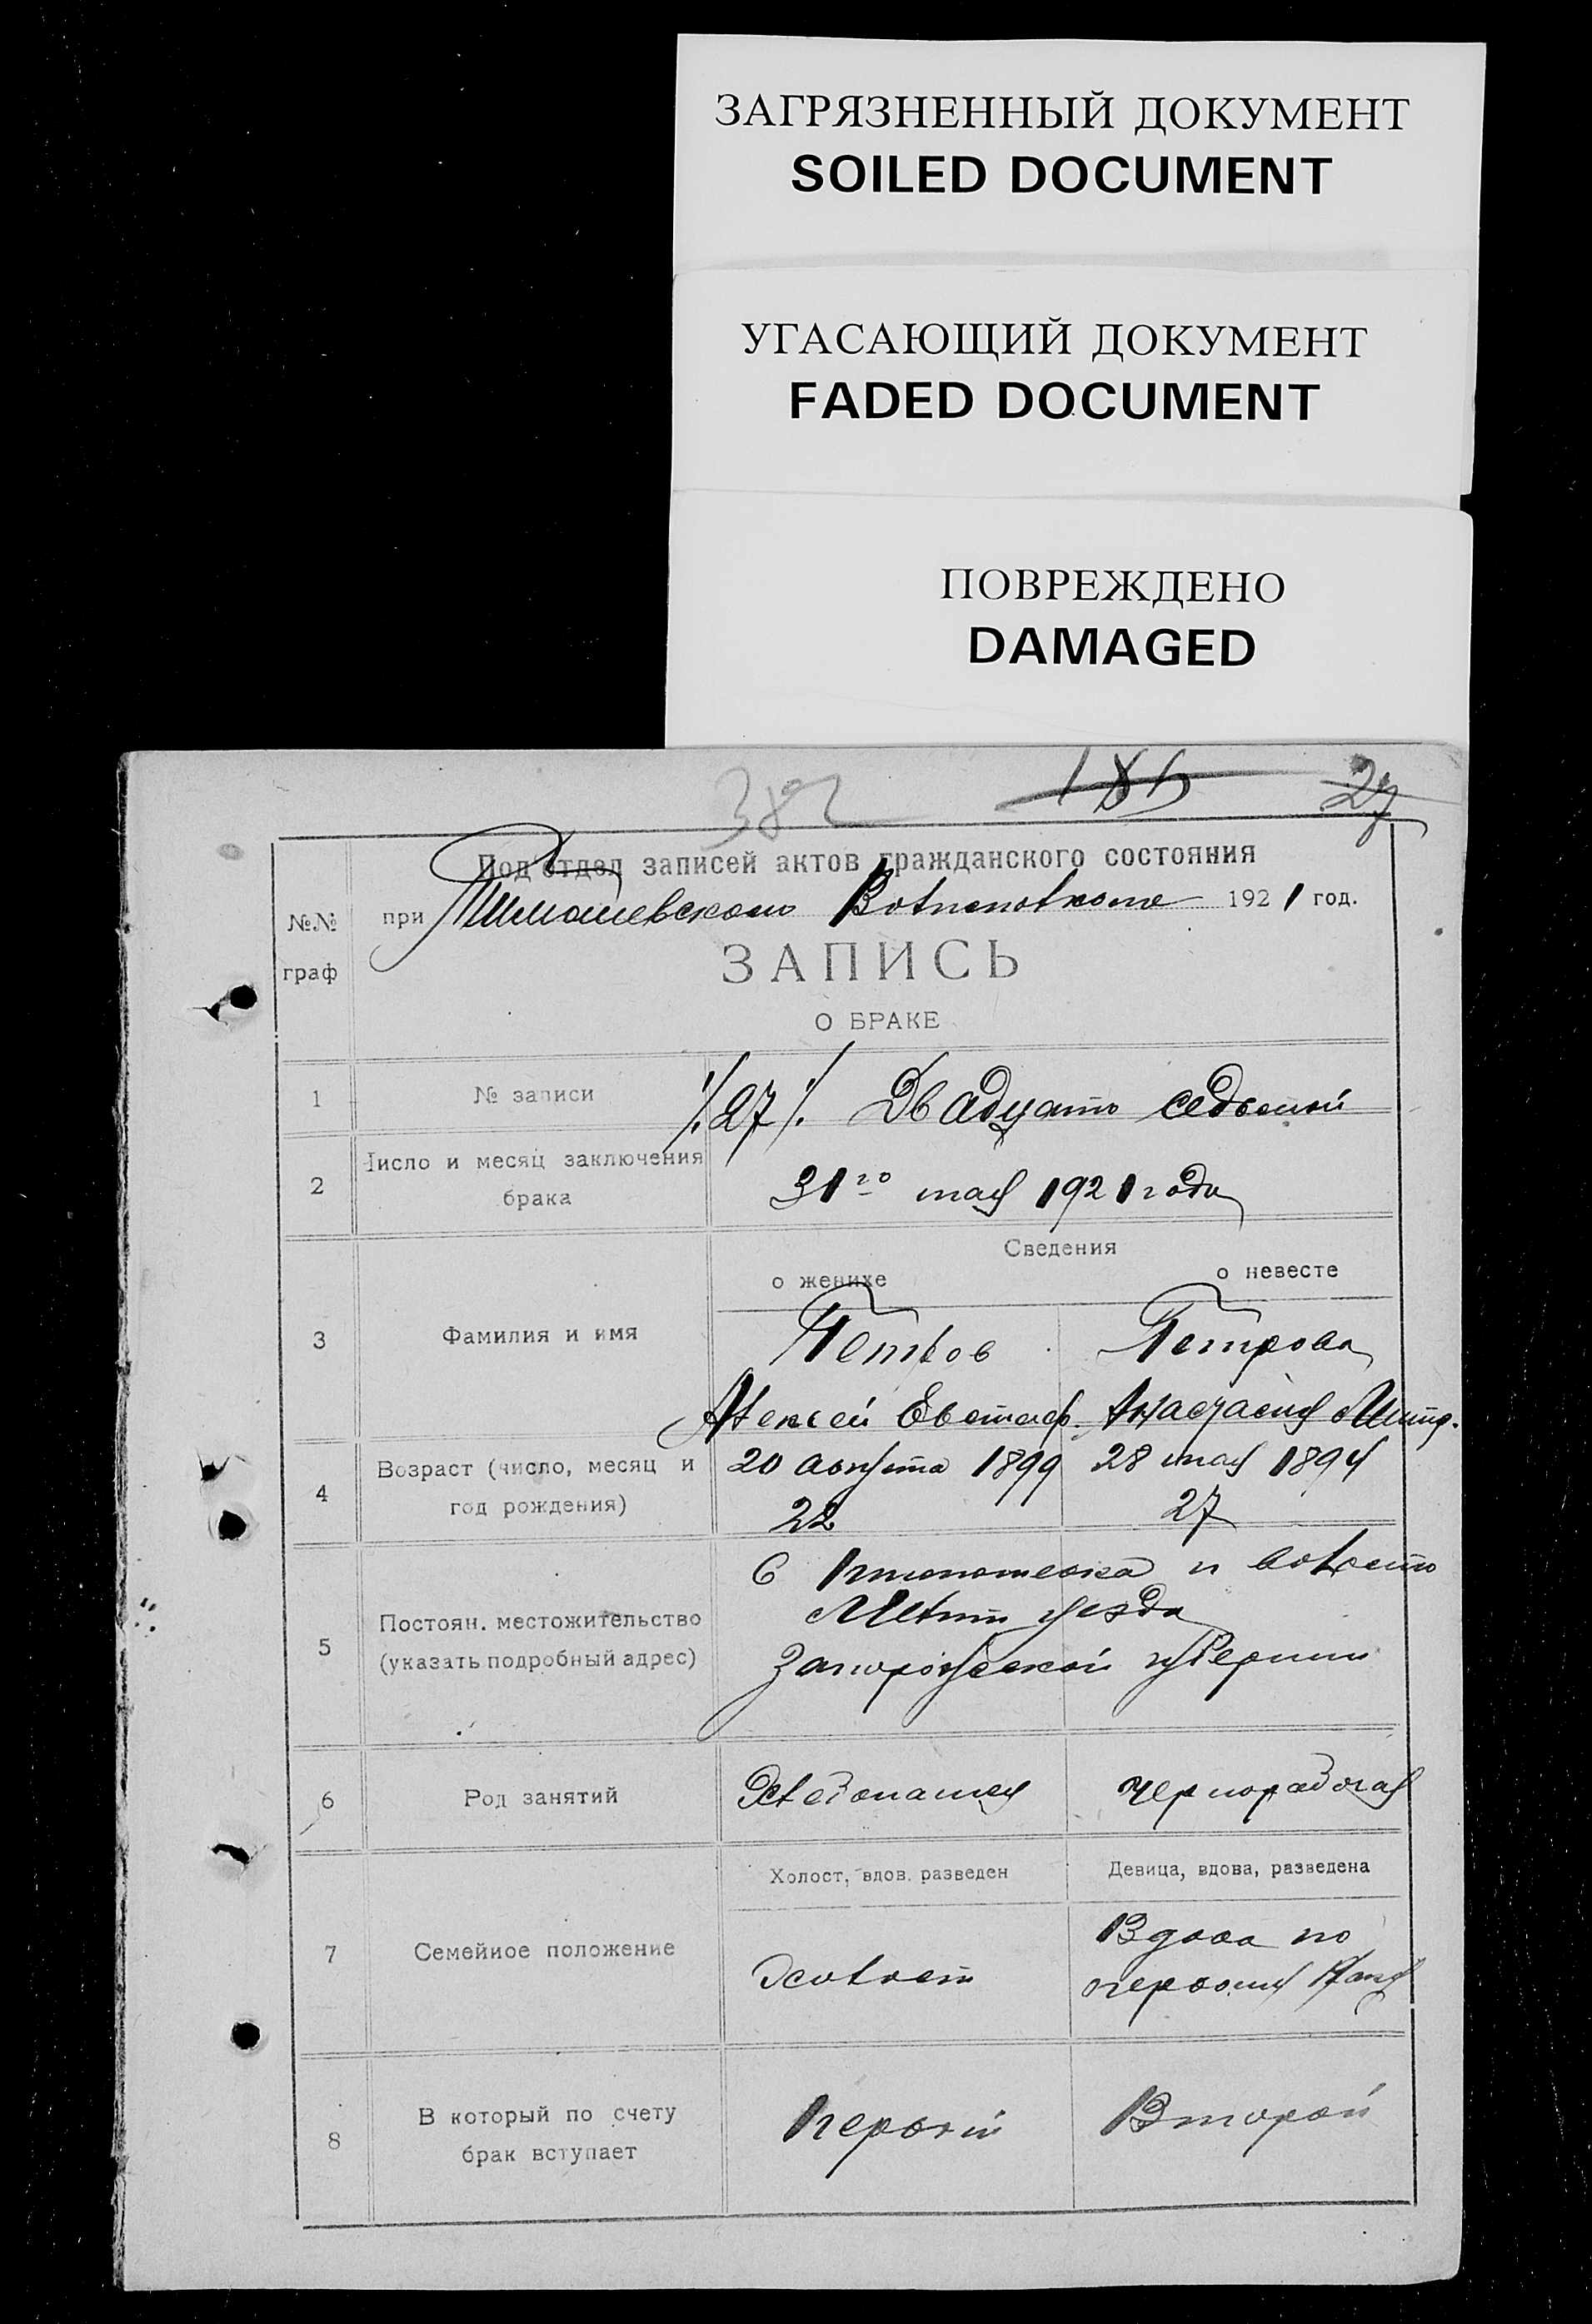 ЗАГРЯЗНЕННЫЙ ДОКУМЕНТ
SOILED DOCUMENT
УГАСАЮЩИЙ ДОКУМЕНТ
FADED DOCUMENT
ПОВРЕЖДЕНО
DAMAGED
382 185 27
Подотдел записей актов гражданского состояния
№№ при 1921 год.
граф ЗАПИСЬ
О БРАКЕ
1 № записи ./.27./. Двадцать седьмой
2 Число и месяц заключения
брака 31го мая 1921 года
Сведения
о женихе о невесте
3 Фамилия и имя Петров Петрова
Алексей Евстаф. Анастасия Митр.
4 Возраст (число, месяц и 20 августа 1899 28 мая 1894
год рождения) 22 27
С и волость
5 Постоян. местожительство Мелит уезда
(указать подробный адрес) Запорожской губернии
6 Род занятий Хлебопашец чернорабочая
Холост, вдов. разведен Девица, вдова, разведена
7 Семейное положение Холост Вдова по
первому
8 В который по счету
брак вступает первый Второй